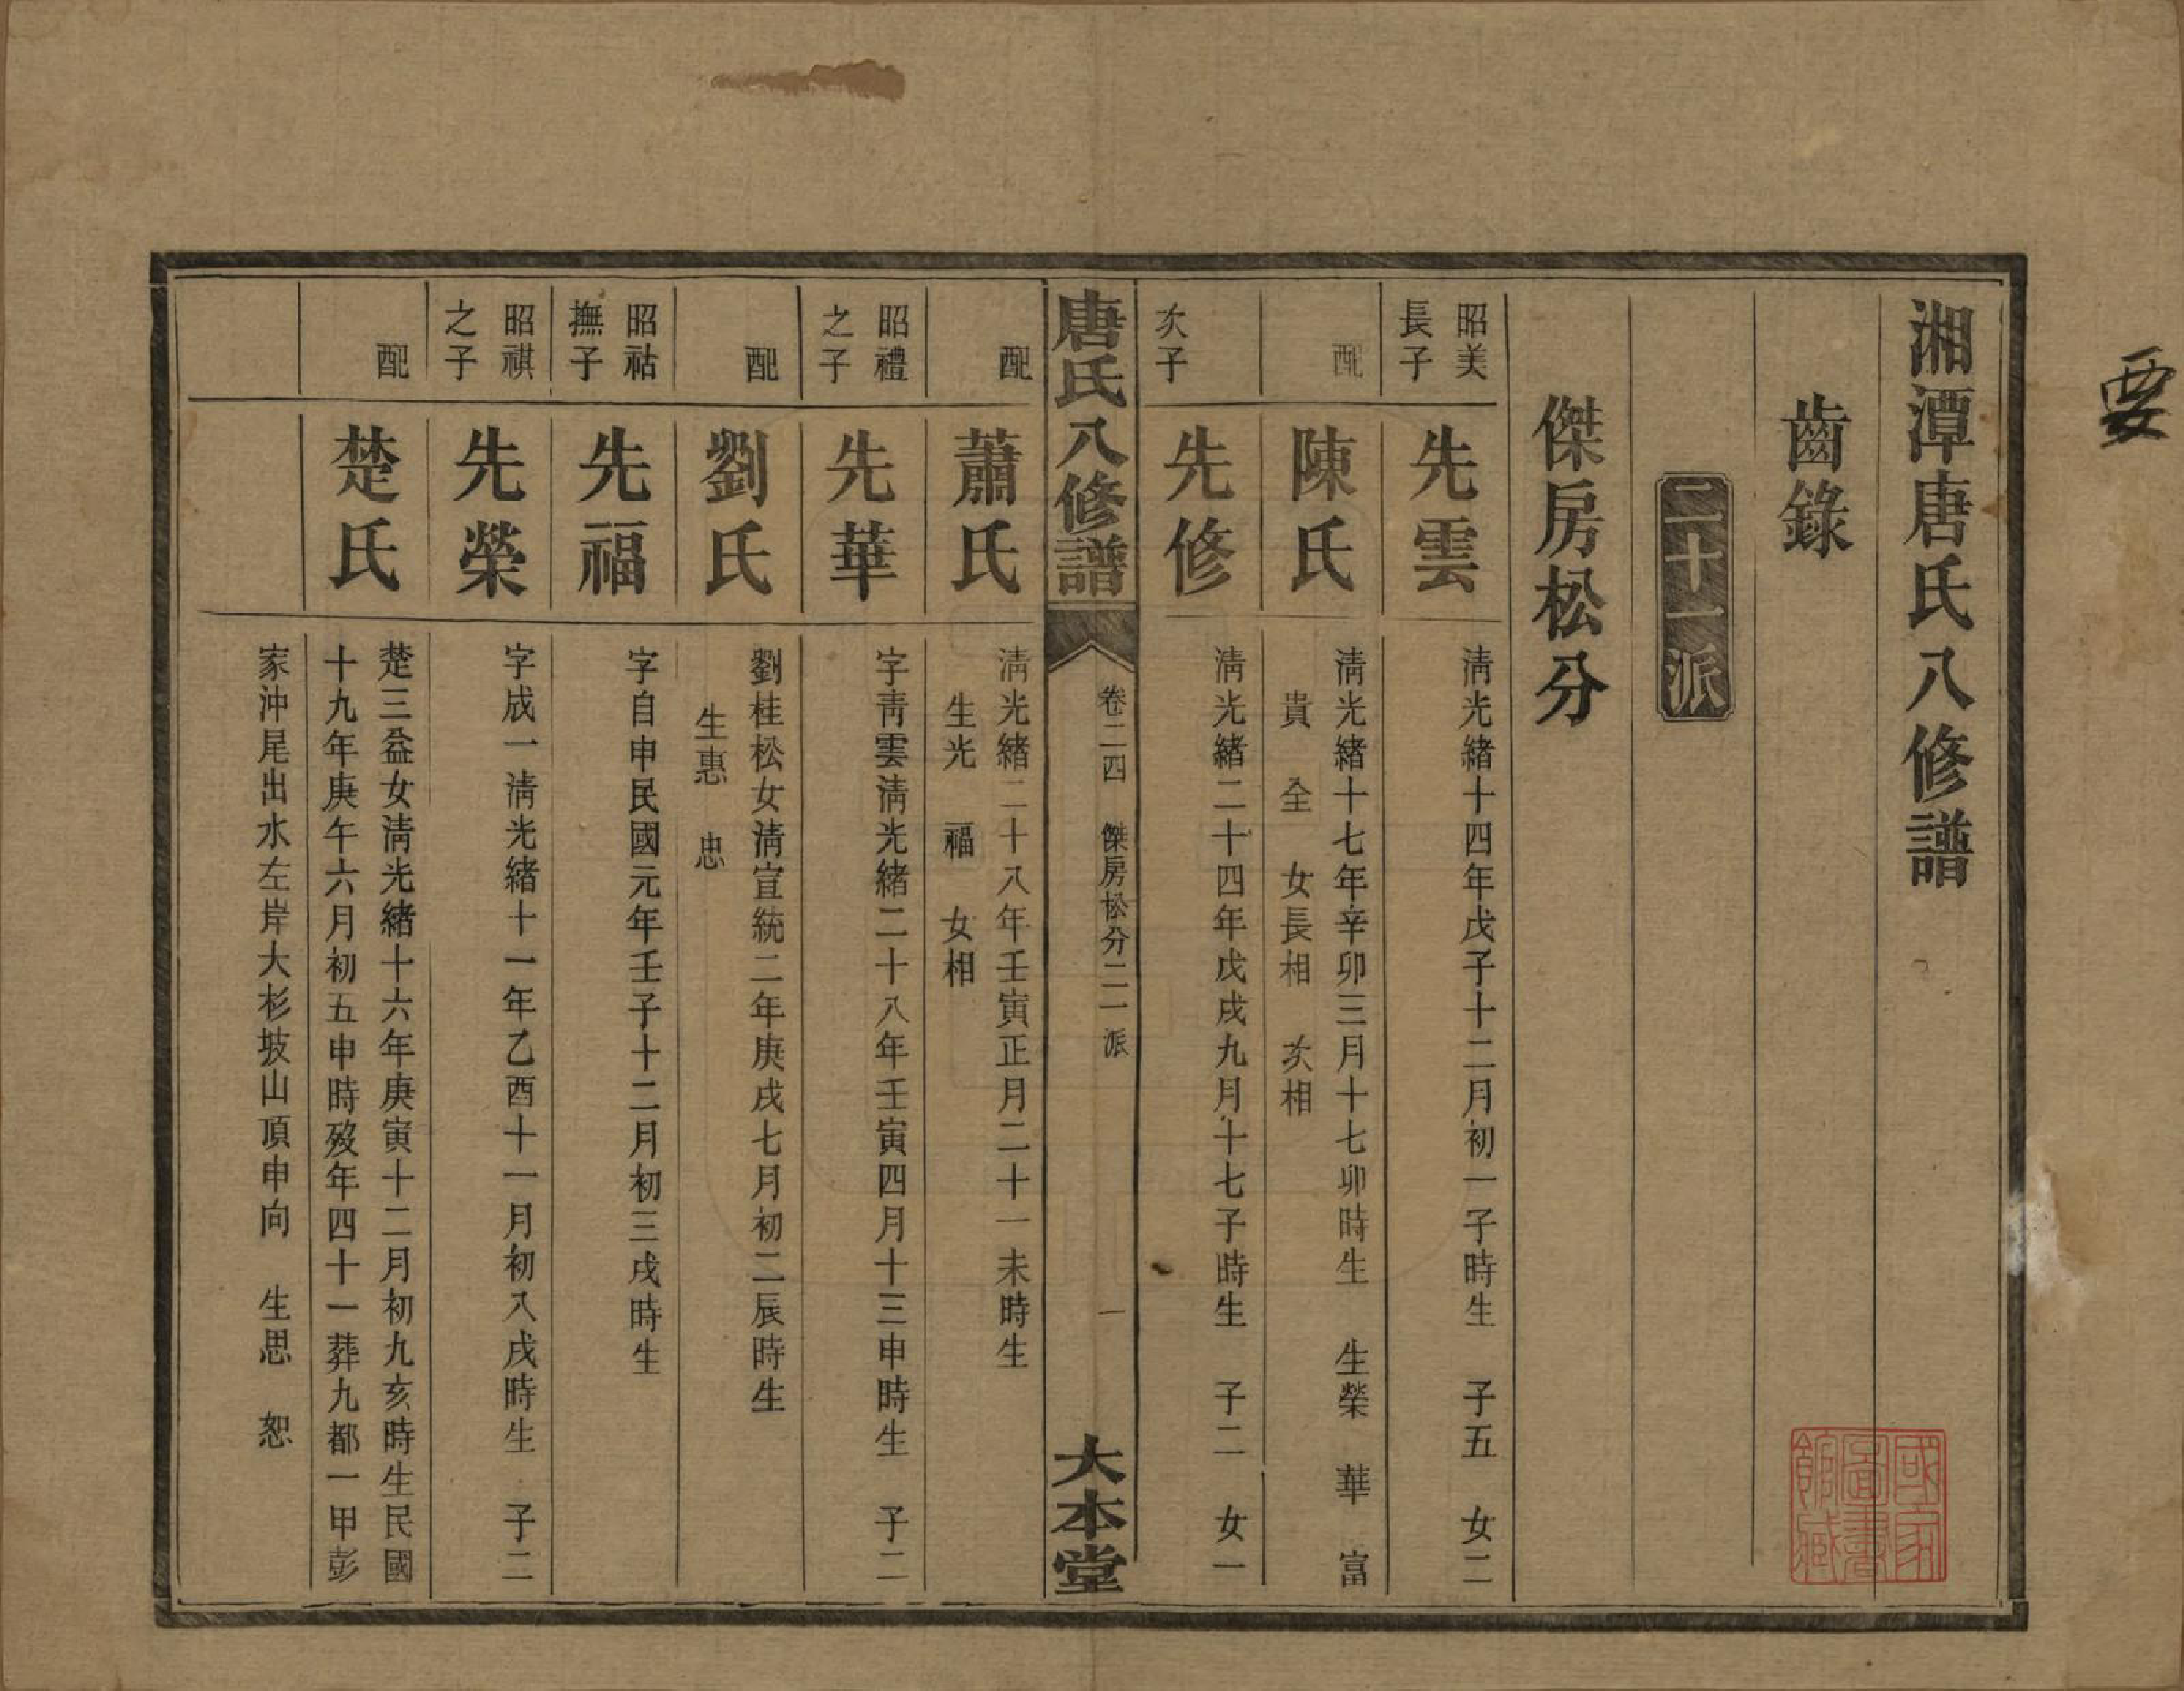 要
湘潭唐氏八修譜
齒錄
二十一派
傑房松分
昭美
長子
先雲
淸光緒十四年戊子十二月初一子時生　子五　女二
配
陳氏
淸光緒十七年辛卯三月十七卯時生　生榮　華　富
貴　全　女長相　次相
次子
先修
淸光緒二十四年戊戌九月十七子時生　子二　女一
唐氏八修譜
卷二四　傑房松分二一派
一
大本堂
配
蕭氏
淸光緒二十八年壬寅正月二十一未時生
生光　福　女相
昭禮
之子
先華
字靑雲淸光緒二十八年壬寅四月十三申時生　子二
配
劉氏
劉桂松女淸宣統二年庚戌七月初二辰時生
生惠　忠
昭祜
撫子
先福
字自申民國元年壬子十二月初三戌時生
昭祺
之子
先榮
字成一淸光緒十一年乙酉十一月初八戌時生　子二
配
楚氏
楚三益女淸光緒十六年庚寅十二月初九亥時生民國
十九年庚午六月初五申時歿年四十一葬九都一甲彭
家沖尾出水左岸大杉坡山頂申向　生思　恕
國家
圖書
館藏